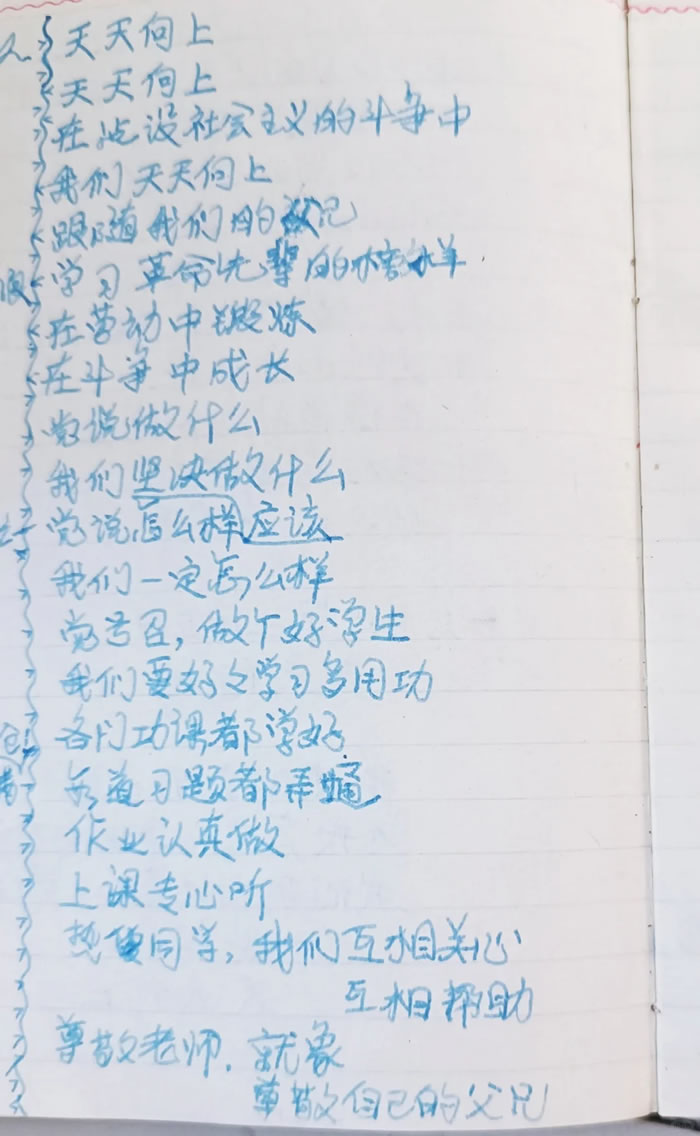 天天向上
天天向上
在建设社会主义的斗争中
我们天天向上
跟随我们的父兄
学习革命先辈的榜样
在劳动中锻炼
在斗争中成长
党说做什么
我们坚决做什么
党说怎么样应该
我们一定怎么样
党号召，做个好学生
我们要好好学习多用功
各门功课都学好
各道习题都弄通
作业认真做
上课专心听
热爱同学，我们互相关心
互相帮助
尊敬老师．就象
尊敬自己的父兄